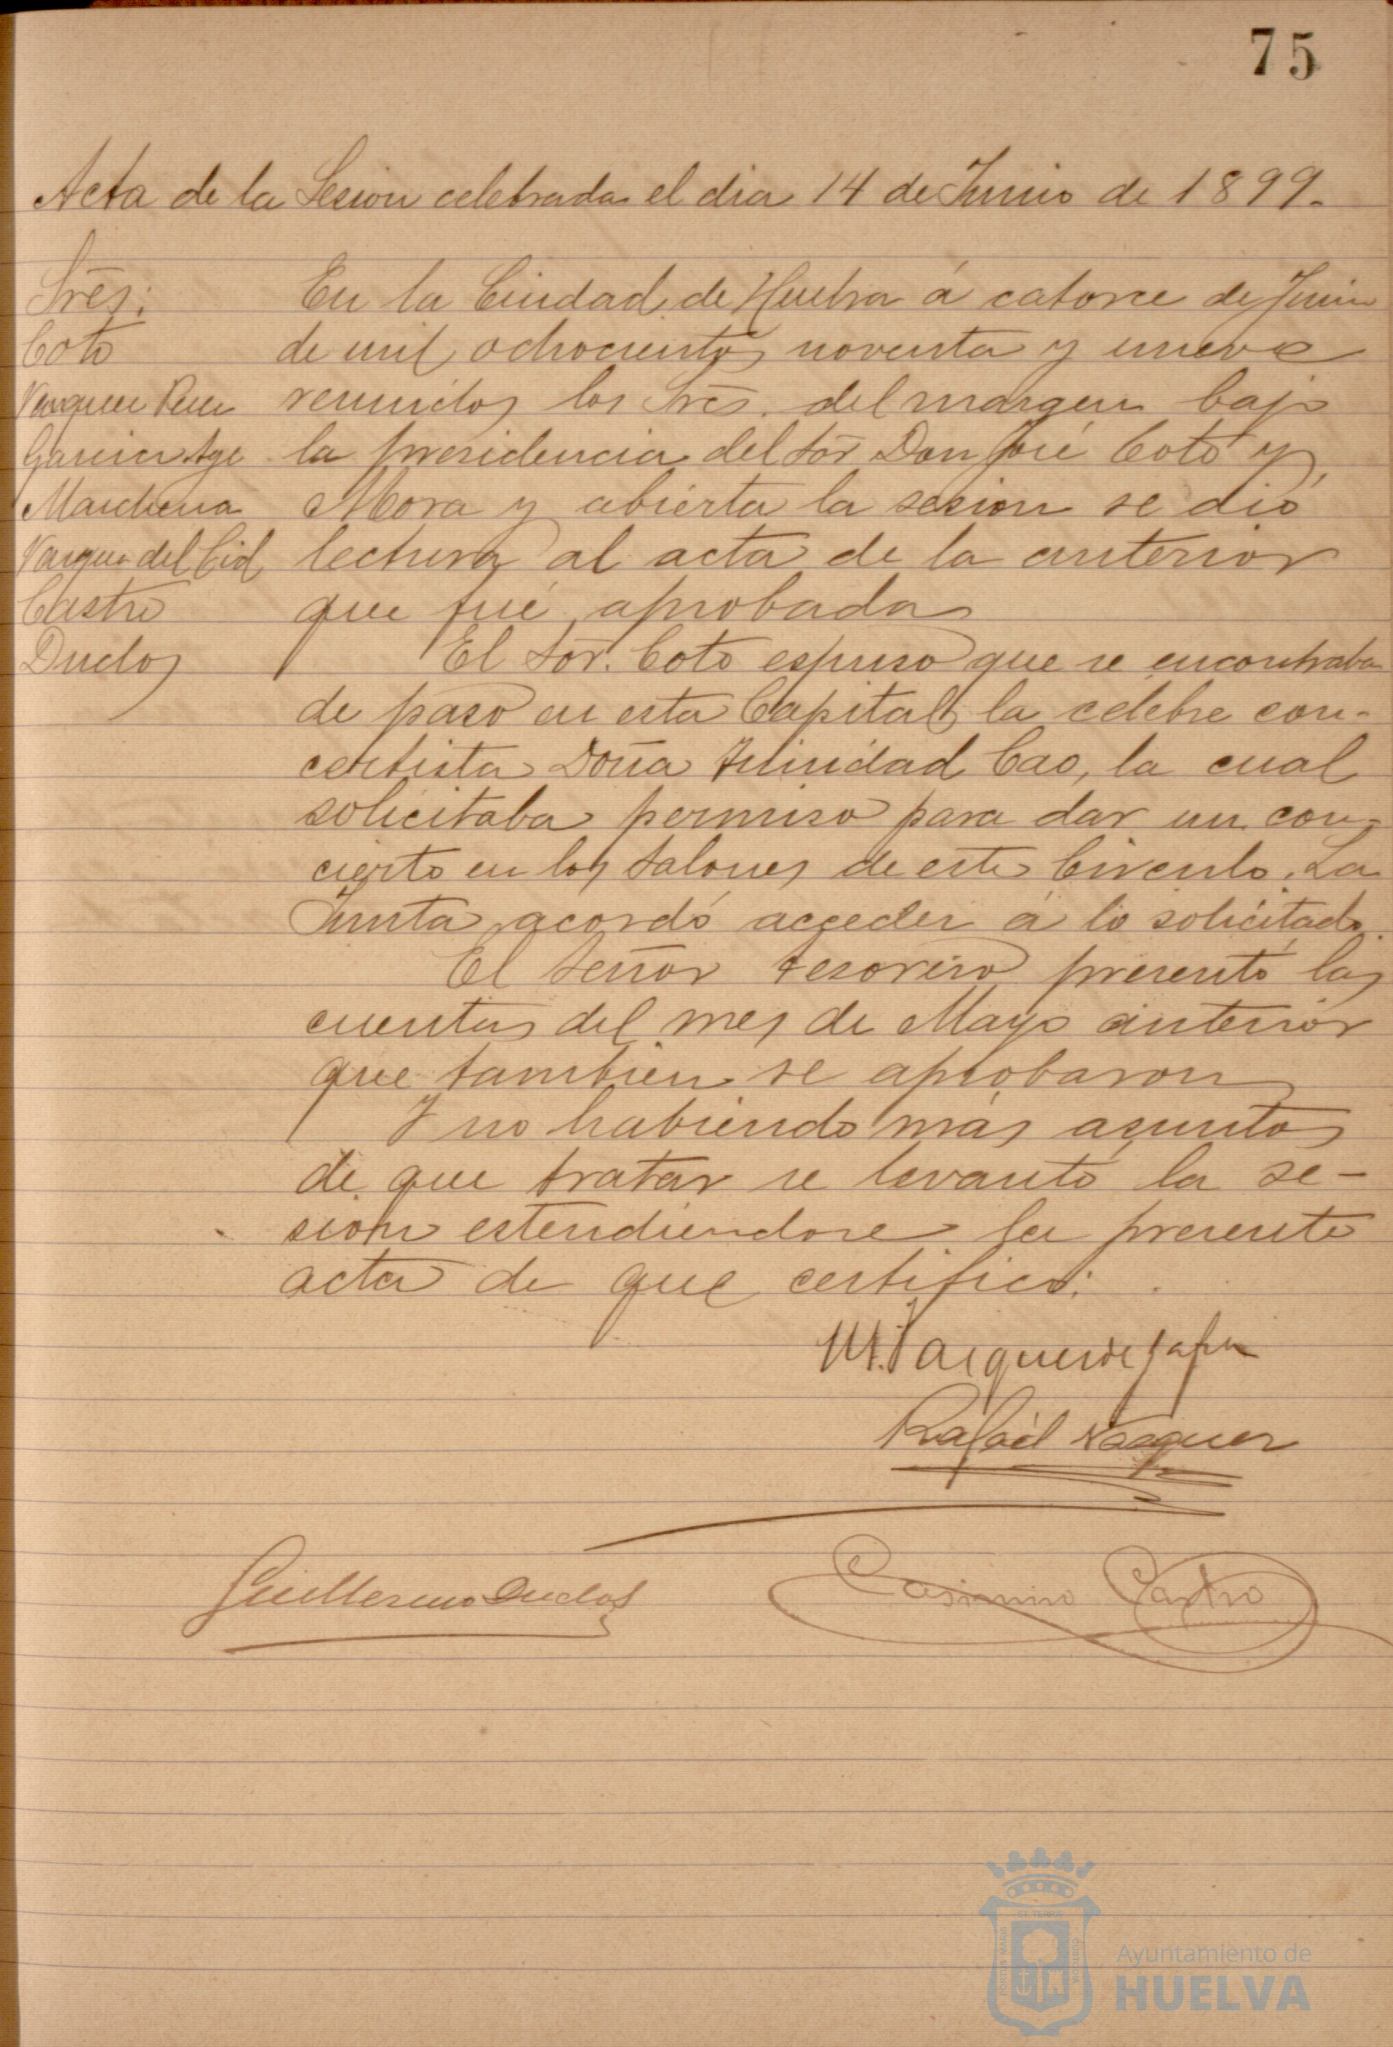 75
Acta de la Sesion celebrada el dia 14 de Junio de 1899.
Sres:
Coto
Vazquez Perez
Garcia Age
Marchena
Vazquez del Cid
Castro
Duclos
En la Ciudad de Huelva á catorce de Junio
de mil ochocientos noventa y nueve
reunidos los Sres. del margen bajo
la presidencia del Sor Don José Coto y
Mora y abierta la sesion se dió
lectura al acta de la anterior
que fué aprobada
El Sor. Coto espuso que se encontraba
de paso en esta Capital la célebre con-
certista Doña Trinidad Cao, la cual
solicitaba permiso para dar un con-
cierto en los Salones de este Circulo. La
Junta acordó acceder á lo solicitado.
El Señor tesorero presentó las
cuentas del mes de Mayo anterior
que tambien se aprobaron
Y no habiendo más asuntos
de que tratar se levantó la se-
sion estendiendose la presente
acta de que certifico:
M. Vazquez de Zafra
Rafael Vazquez
Guillermo Duclos
Casimiro Castro
Ayuntamiento de
HUELVA